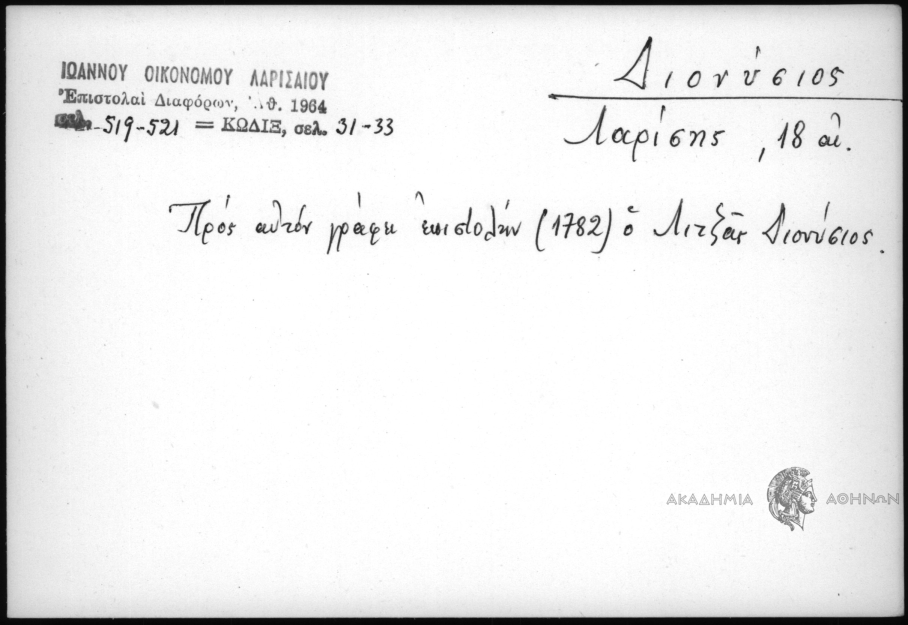 ΙΩΑΝΝΟΥ ΟΙΚΟΝΟΜΟΥ ΛΑΡΙΣΑΙΟΥ
Ἐπιστολαὶ Διαφόρων, Ἀθ. 1964
-519-521 = ΚΩΔΙΞ, σελ. 31-33
Διονύσιος
Λαρίσης, 18 αἰ.
Πρὸς αὐτὸν γράφει ἐπιστολὴν (1782) ὁ Λιτζᾶς Διονύσιος.
ΑΚΑΔΗΜΙΑ ΑΘΗΝΩΝ